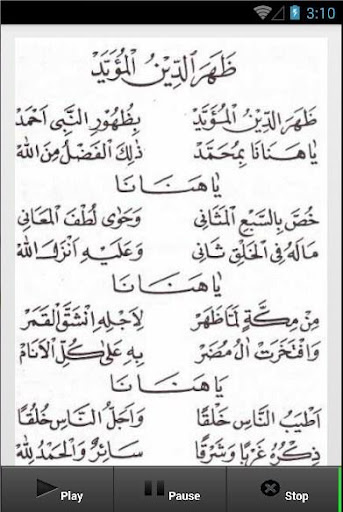 3:10
ظَهَرَ الدِّيْنُ الْمُؤَيَّدْ
ظَهَرَ الدِّيْنُ الْمُؤَيَّدْ بِظُهُوْرِ النَّبِى اَحْمَدْ
يَاهَنَانَا بِمُحَمَّدْ ذٰلِكَ الْفَضْلُ مِنَ اللهْ
يَاهَنَانَا
خُصَّ بِالسَّبْعِ الْمَثَانِى وَحَوٰى لُطْفَ الْمَعَانِى
مَالَهُ فِى الْخَلْقِ ثَانِى وَعَلَيْهِ اَنْزَلَ اللهْ
يَاهَنَانَا
مِنْ مَكَّةٍ لَمَّا ظَهَرْ لِاَجْلِهِ انْشَقَّ الْقَمَرْ
وَافْتَخَرَتْ اٰلُ مُضَرْ بِهِ عَلٰى كُلِّ الْاَنَامْ
يَاهَنَانَا
اَطْيَبُ النَّاسِ خَلْقًا وَاَجَلُّ النَّاسِ خُلُقًا
ذِكْرُهُ غَرْبًا وَشَرْقًا سَائِرٌ وَالْحَمْدُ لِلّٰهْ
Play Pause Stop